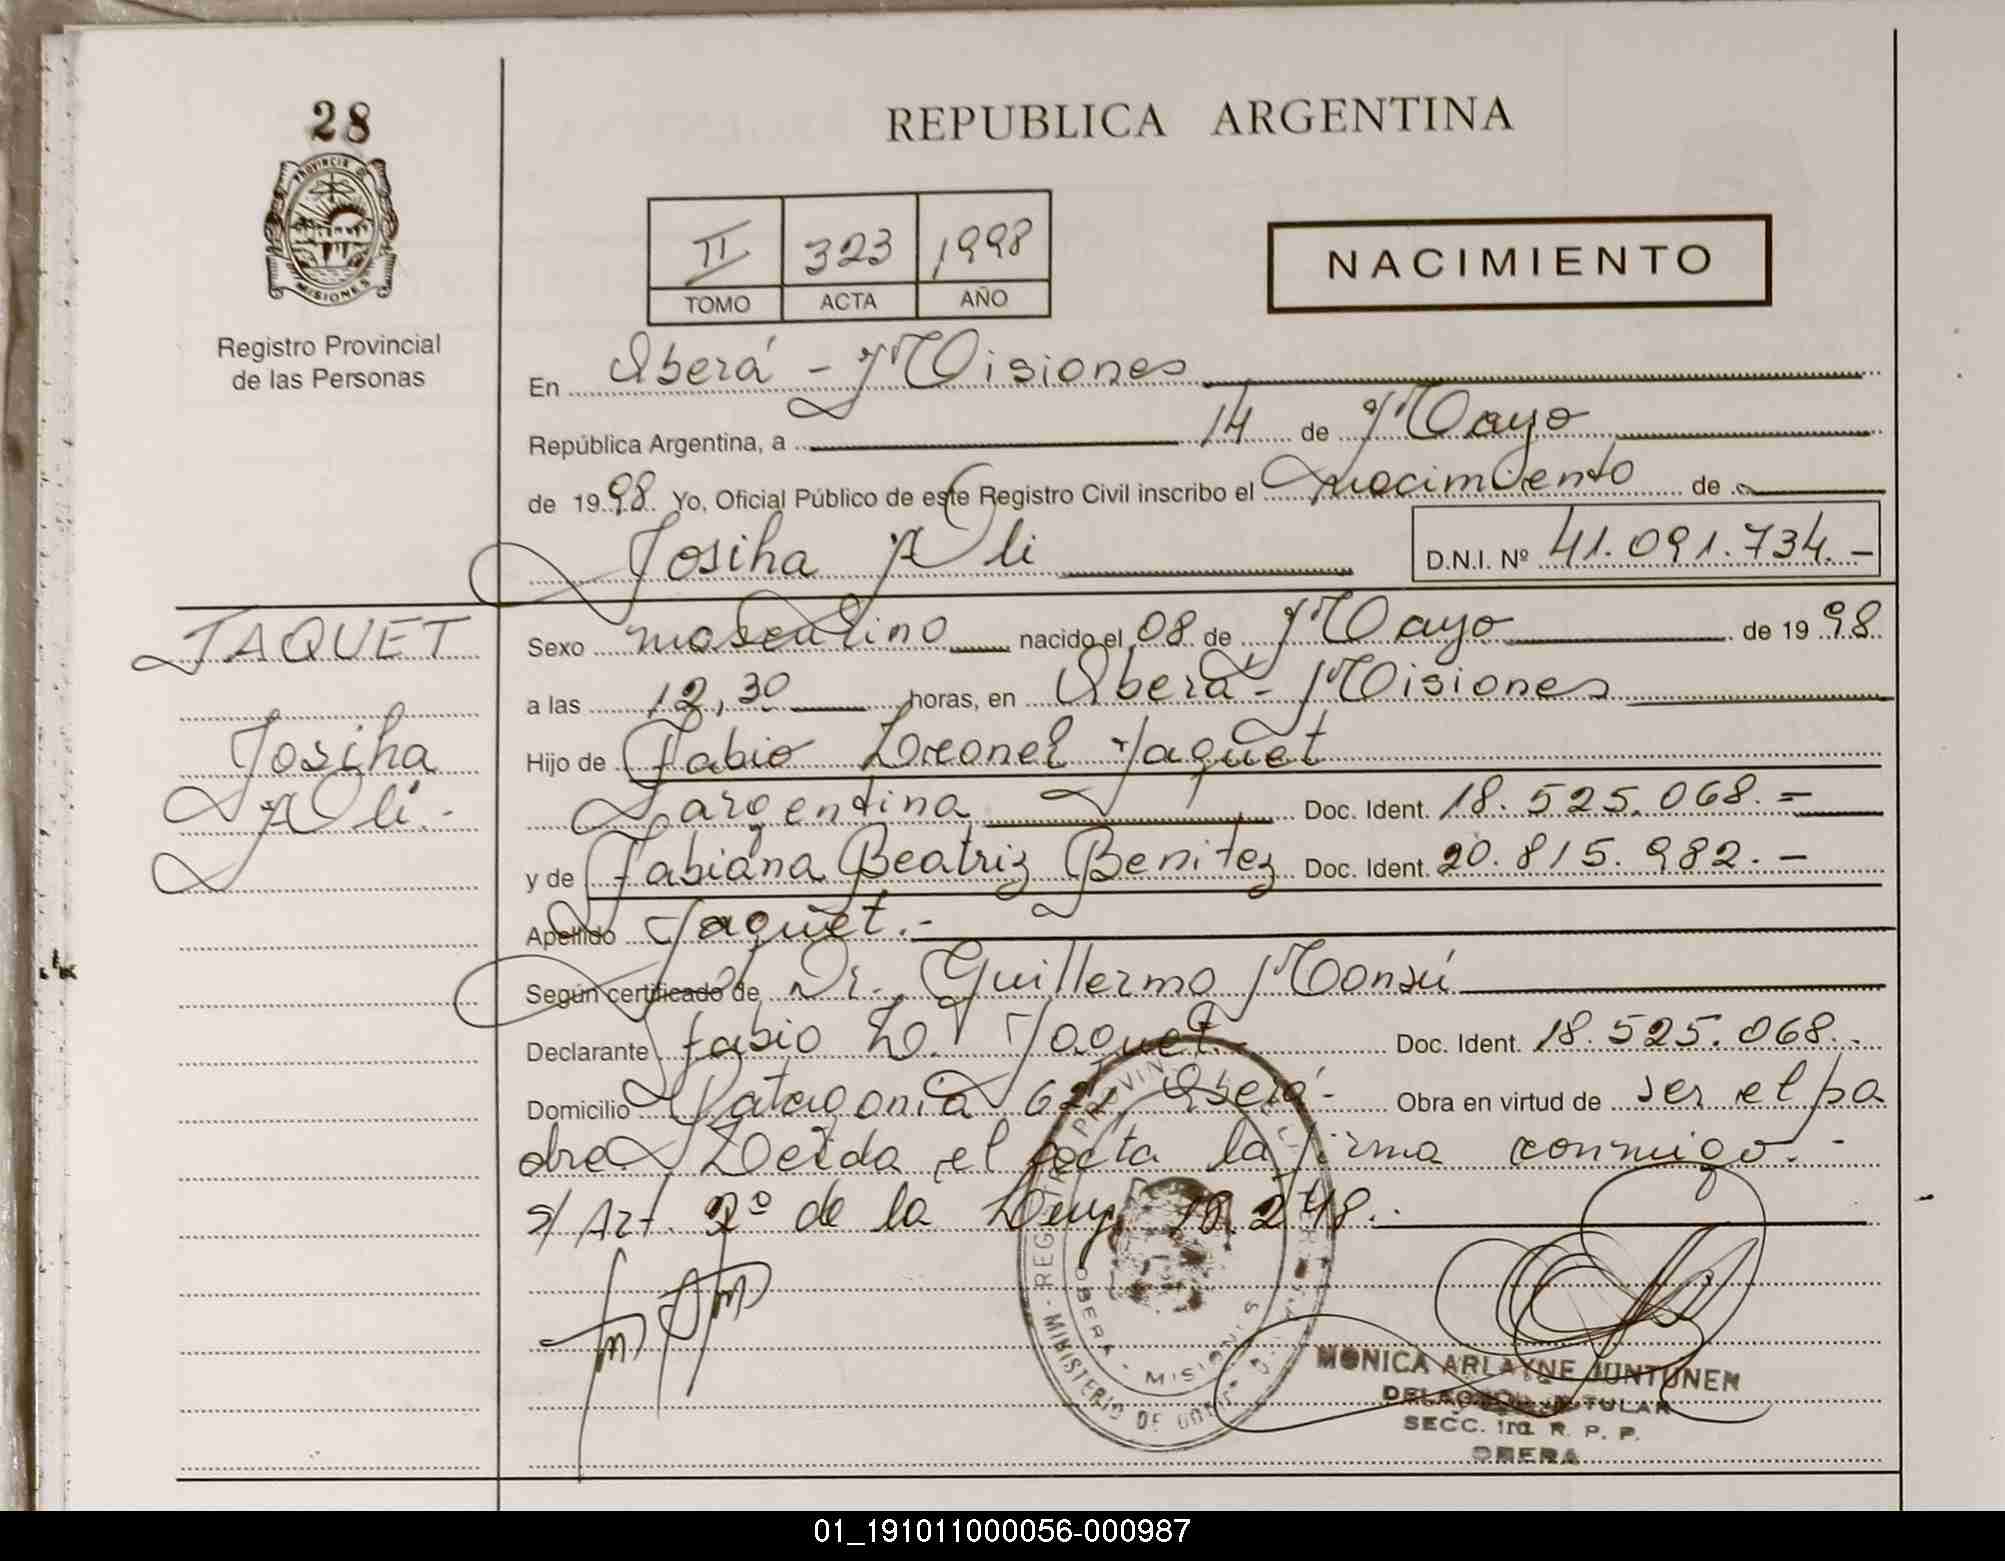 28
PROVINCIA DE
MISIONES
Registro Provincial
de las Personas
REPUBLICA ARGENTINA
II 323 1998
TOMO ACTA AÑO
NACIMIENTO
En Oberá - Misiones
República Argentina, a 14 de Mayo
de 1998. Yo, Oficial Público de este Registro Civil inscribo el nacimiento de
Josiha Ali
D.N.I. Nº 41.091.734.-
JAQUET
Josiha
Ali.-
Sexo masculino nacido el 08 de Mayo de 1998.
a las 12,30 horas, en Oberá - Misiones
Hijo de Fabio Leonel Jaquet
argentina Doc. Ident. 18.525.068.=
y de Fabiana Beatriz Benitez Doc. Ident. 20.815.982.-
Apellido Jaquet.-
Según certificado de Dr. Guillermo Monsú
Declarante Fabio L. Jaquet.- Doc. Ident. 18.525.068.-
Domicilio Patagonia 622 Oberá- Obra en virtud de ser el pa
dre. Leída el acta la firma conmigo.-
s/Art. 2º de la Ley 18.248.-
REGISTRO PROVINCIAL
OBERA - MISIONES
MINISTERIO DE GOB.
MONICA ARLAYNE JUNTUNEN
DELEGADA TITULAR
SECC. 1ra. R. P. P.
OBERA
01_191011000056-000987